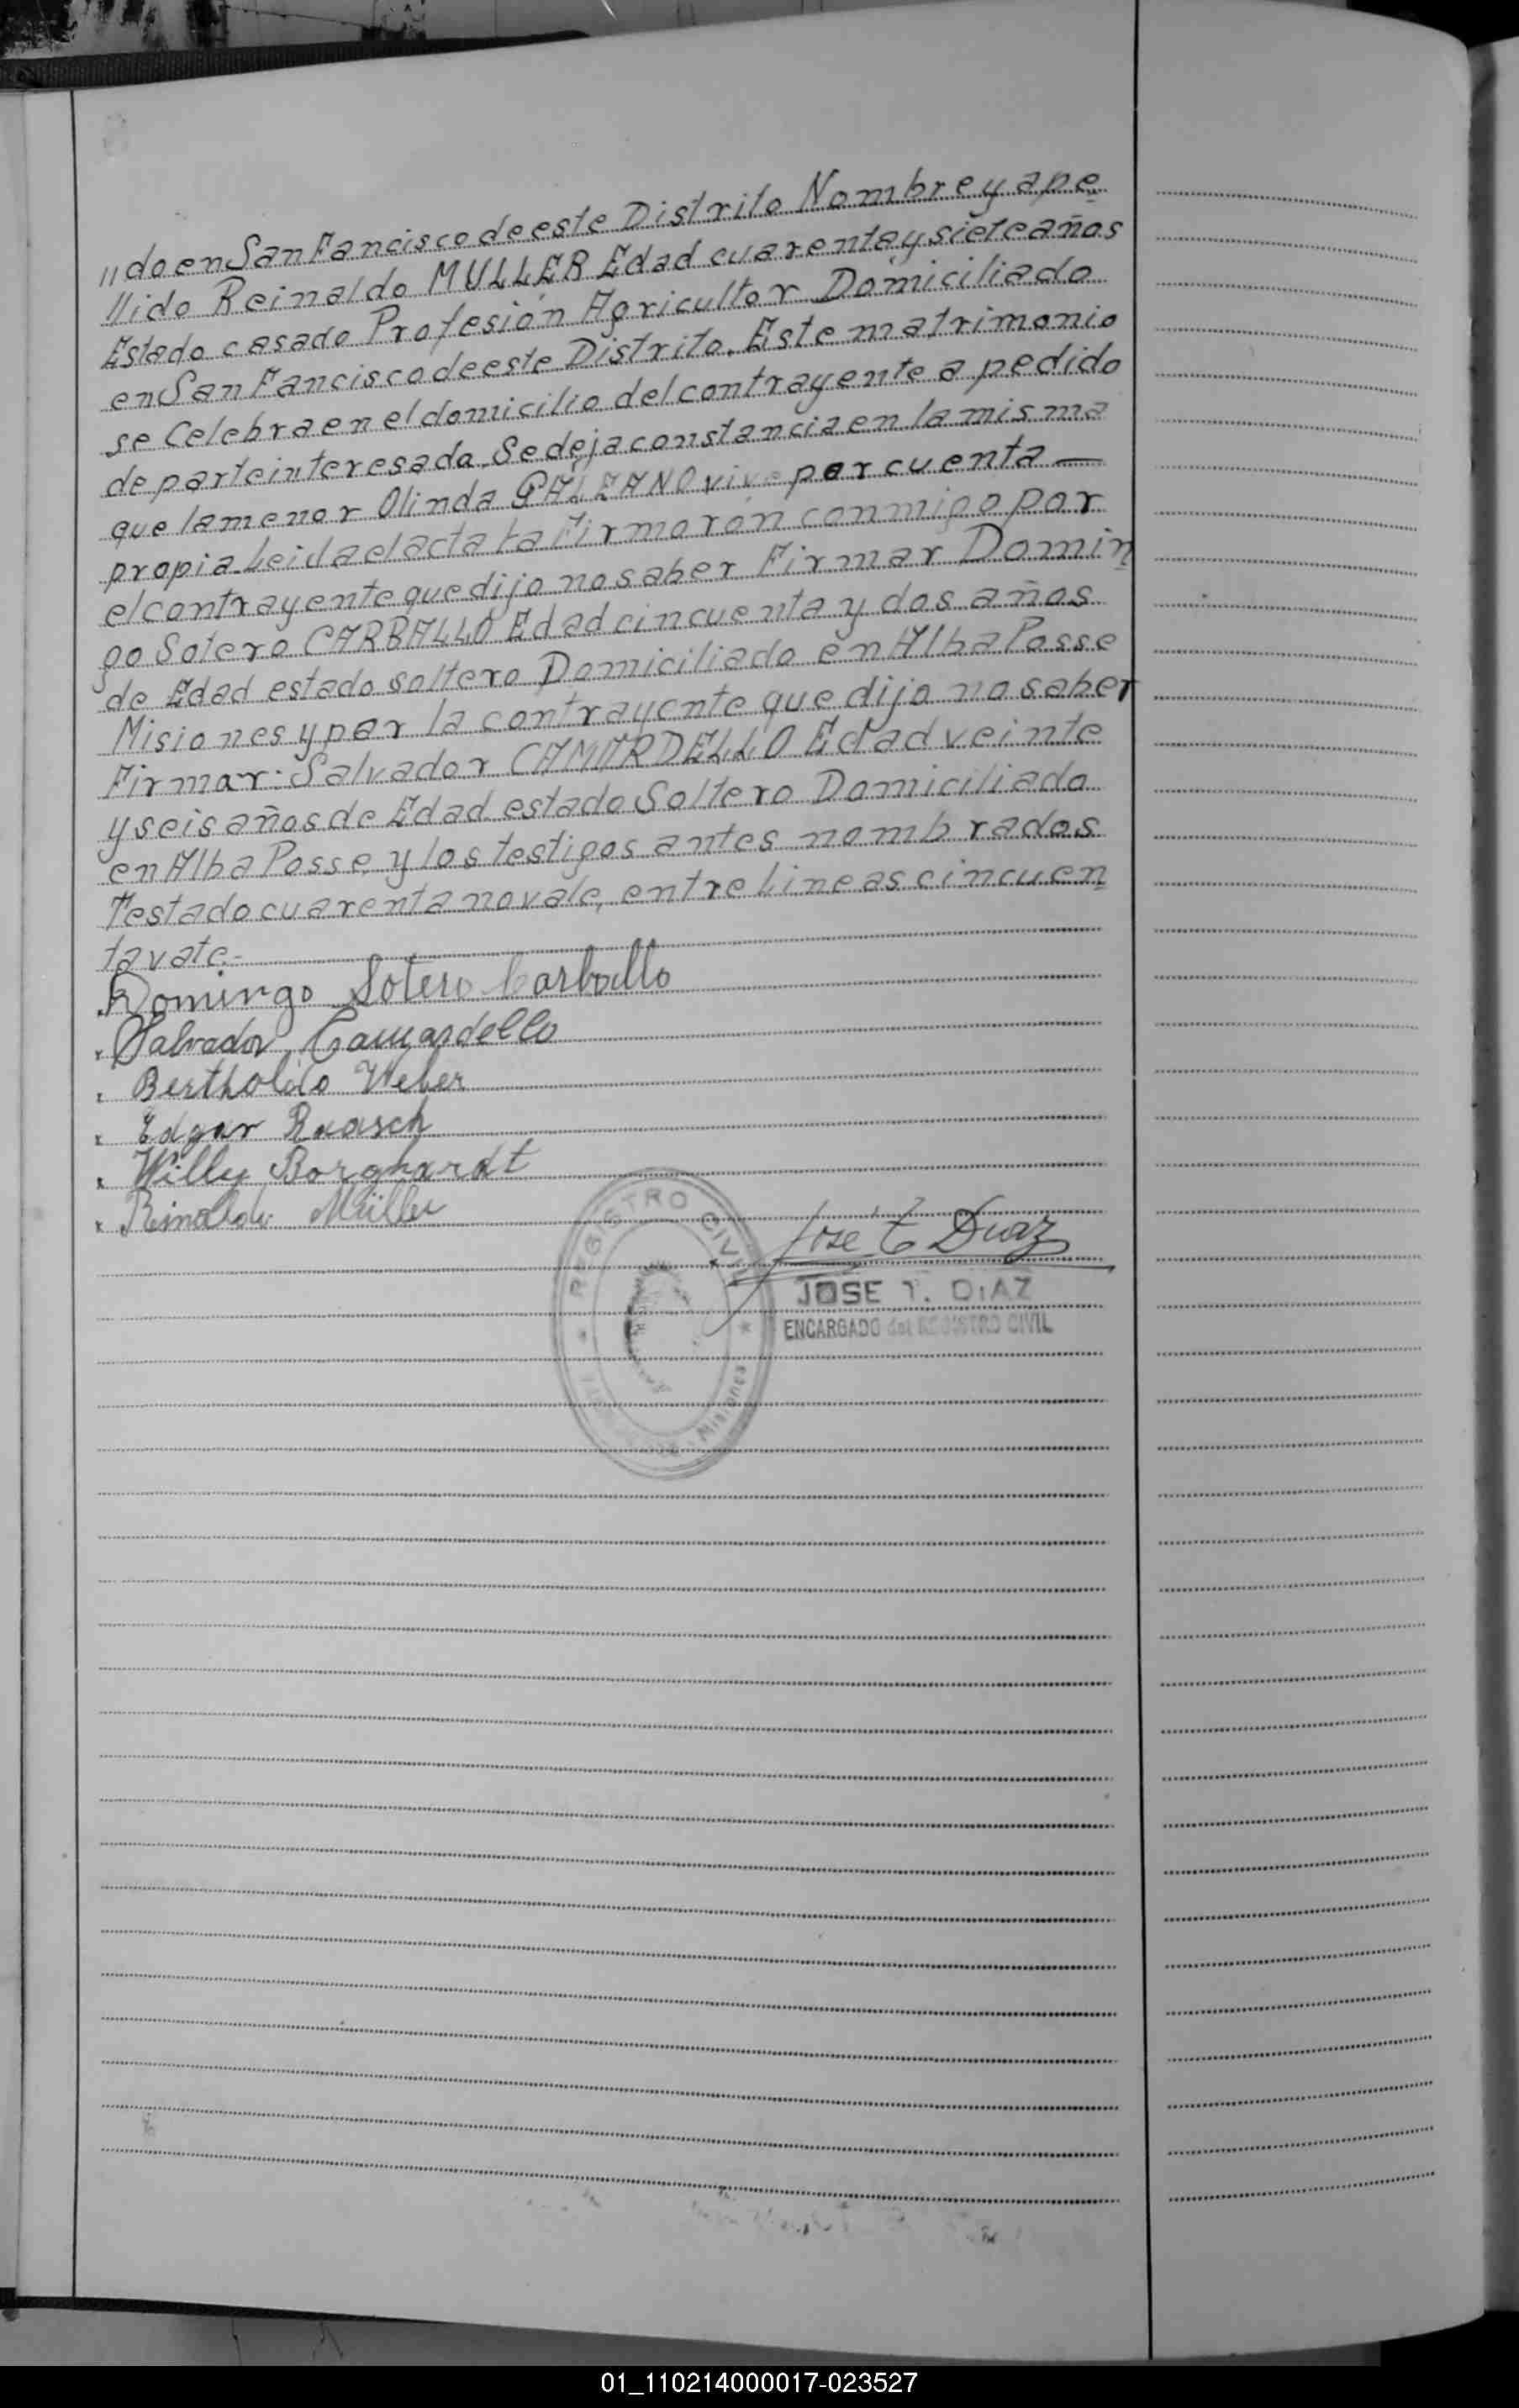 "do en San Fancisco de este Distrito Nombre y ape
llido Reinaldo MULLER Edad cuarenta y siete años
Estado casado Profesión Agricultor Domiciliado
en San Fancisco de este Distrito. Este matrimonio
se Celebra en el domicilio del contrayente a pedido
de parte interesada. Se deja constancia en la misma
que la menor Olinda GALEANO vive por cuenta —
propia. Leida el acta la Firmaron conmigo por
el contrayente que dijo no saber Firmar Domin
go Sotero CARBALLO Edad cincuenta y dos años
de Edad estado soltero Domiciliado en Alba Posse
Misiones y por la contrayente que dijo no saber
Firmar: Salvador CAMARDELLO Edad veinte
y seis años de Edad estado Soltero Domiciliado
en Alba Posse, y los testigos antes nombrados
Testado cuarenta no vale, entre Lineas cincuen
ta vale.-
Domingo Sotero Carballo
Salvador Camardello
Bertholdo Weber
Edgar Raasch
Willy Borghardt
Rinoldo Müller
REGISTRO CIVIL
Misiones
José T Diaz
JOSE T. DIAZ
ENCARGADO del REGISTRO CIVIL
01_110214000017-023527